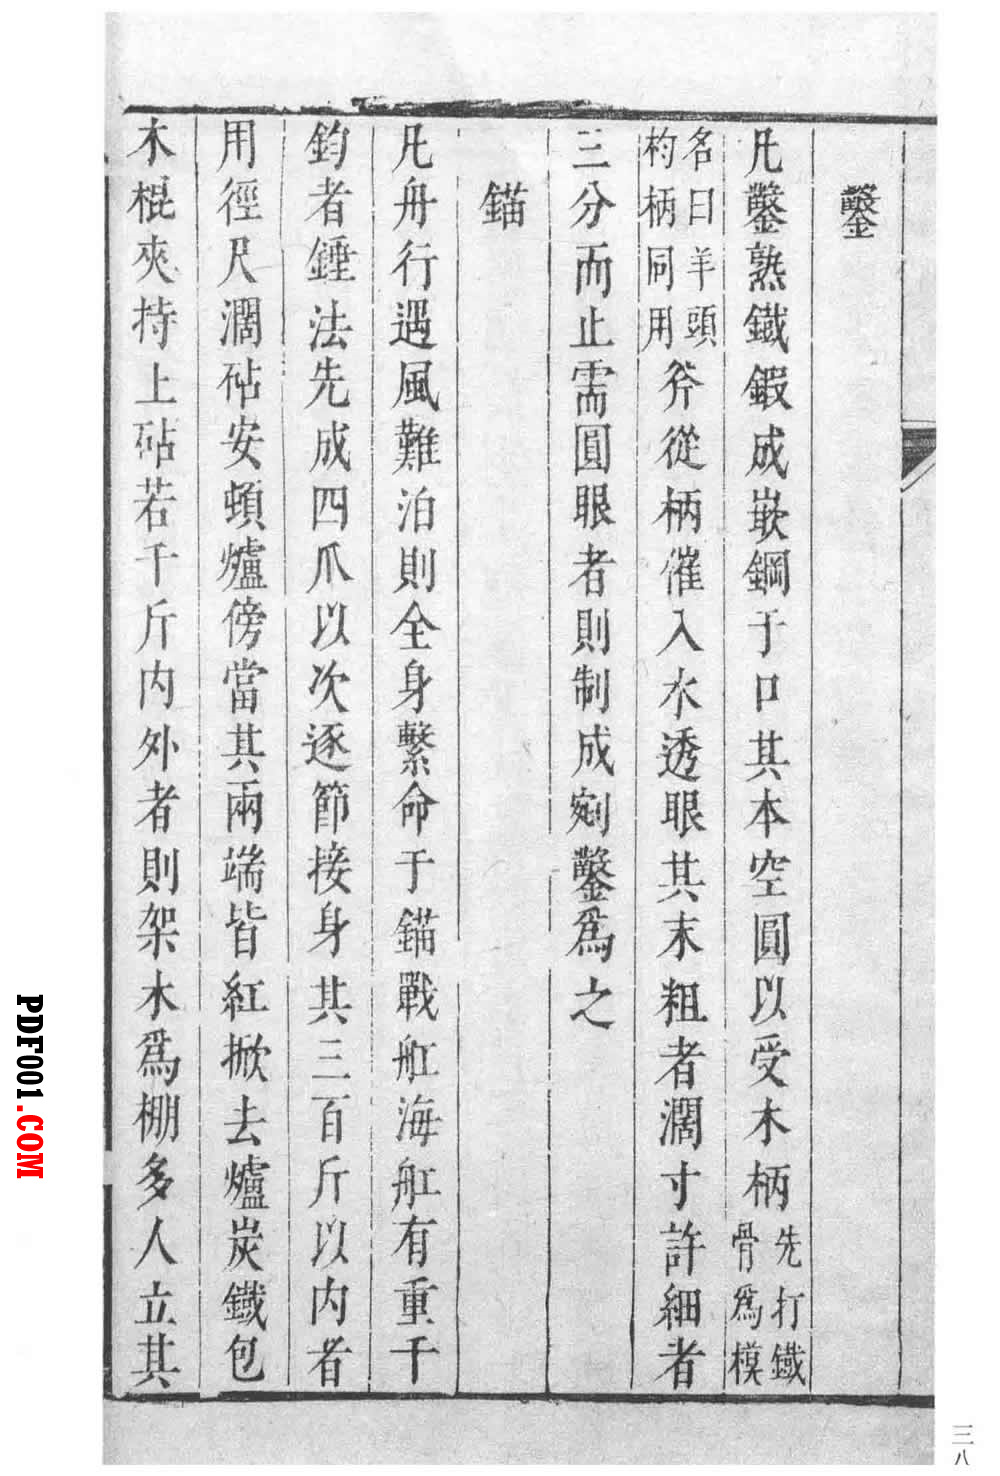 鑿
凡鑿熟鐵鍜成嵌鋼于口其本空圓以受木柄先打鐵骨爲模
名曰羊頭杓柄同用斧從柄催入木透眼其末粗者濶寸許細者
三分而止需圓眼者則制成剜鑿爲之
錨
凡舟行遇風難泊則全身繫命于錨戰舡海舡有重千
鈞者錘法先成四爪以次逐節接身其三百斤以內者
用徑尺濶砧安頓爐傍當其兩端皆紅掀去爐炭鐵包
木棍夾持上砧若千斤內外者則架木爲棚多人立其
三八
PDF001.COM